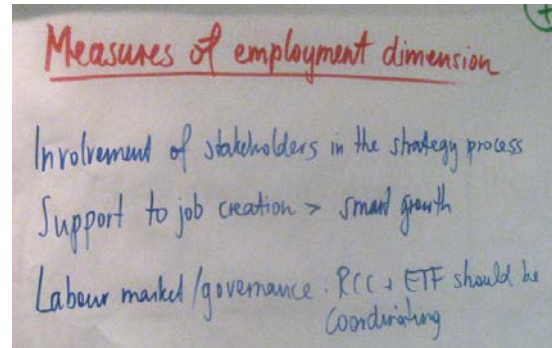 Measures of employment dimension
Involvement of stakeholders in the strategy process
Support to job creation > smart growth
Labour market/governance. RCC + ETF should be
coordinating